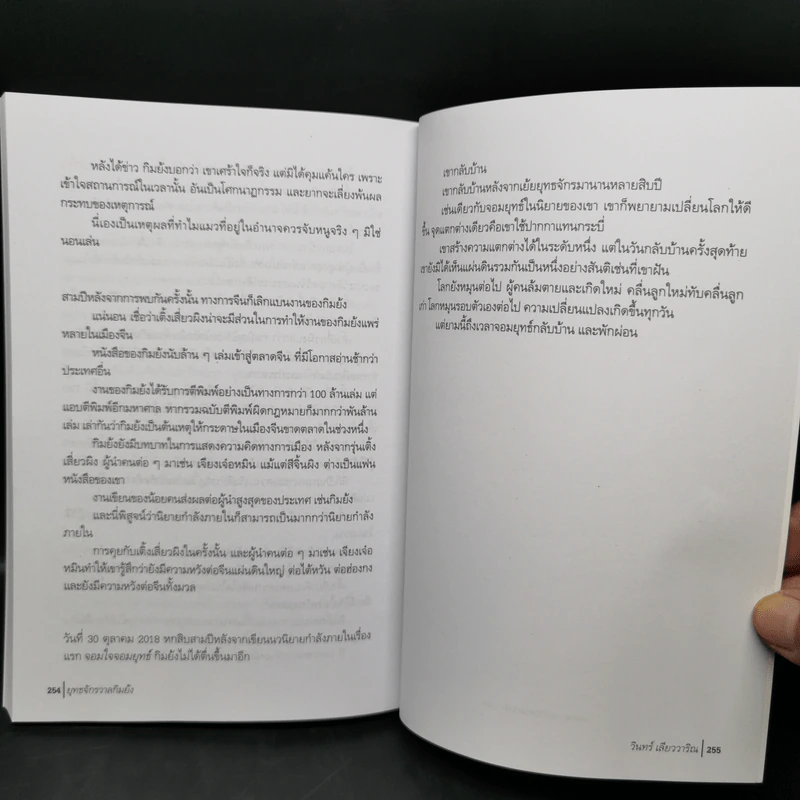 หลังได้ข่าว กิมย้งบอกว่า เขาเศร้าใจก็จริง แต่มิได้คุมแค้นใคร เพราะ
เข้าใจสถานการณ์ในเวลานั้น อันเป็นโศกนาฏกรรม และยากจะเลี่ยงพ้นผล
กระทบของเหตุการณ์
นี่เองเป็นเหตุผลที่ทำไมแมวที่อยู่ในอำนาจควรจับหนูจริง ๆ มิใช่
นอนเล่น
สามปีหลังจากการพบกันครั้งนั้น ทางการจีนก็เลิกแบนงานของกิมย้ง
แน่นอน เชื่อว่าเติ้งเสี่ยวผิงน่าจะมีส่วนในการทำให้งานของกิมย้งแพร่
หลายในเมืองจีน
หนังสือของกิมย้งนับล้าน ๆ เล่มเข้าสู่ตลาดจีน ที่มีโอกาสอ่านช้ากว่า
ประเทศอื่น
งานของกิมย้งได้รับการตีพิมพ์อย่างเป็นทางการกว่า 100 ล้านเล่ม แต่
แอบตีพิมพ์อีกมหาศาล หากรวมฉบับตีพิมพ์ผิดกฎหมายก็มากกว่าพันล้าน
เล่ม เล่ากันว่ากิมย้งเป็นต้นเหตุให้กระดาษในเมืองจีนขาดตลาดในช่วงหนึ่ง
กิมย้งยังมีบทบาทในการแสดงความคิดทางการเมือง หลังจากรุ่นเติ้ง
เสี่ยวผิง ผู้นำคนต่อ ๆ มาเช่น เจียงเจ๋อหมิน แม้แต่สีจิ้นผิง ต่างเป็นแฟน
หนังสือของเขา
งานเขียนของน้อยคนส่งผลต่อผู้นำสูงสุดของประเทศ เช่นกิมย้ง
และนี่พิสูจน์ว่านิยายกำลังภายในก็สามารถเป็นมากกว่านิยายกำลัง
ภายใน
การคุยกับเติ้งเสี่ยวผิงในครั้งนั้น และผู้นำคนต่อ ๆ มาเช่น เจียงเจ๋อ
หมินทำให้เขารู้สึกว่ายังมีความหวังต่อจีนแผ่นดินใหญ่ ต่อไต้หวัน ต่อฮ่องกง
และยังมีความหวังต่อจีนทั้งมวล
วันที่ 30 ตุลาคม 2018 หกสิบสามปีหลังจากเขียนนวนิยายกำลังภายในเรื่อง
แรก จอมใจจอมยุทธ์ กิมย้งไม่ได้ตื่นขึ้นมาอีก
254 | ยุทธจักรวาลกิมย้ง
เขากลับบ้าน
เขากลับบ้านหลังจากเย้ยยุทธจักรมานานหลายสิบปี
เช่นเดียวกับจอมยุทธ์ในนิยายของเขา เขาก็พยายามเปลี่ยนโลกให้ดี
ขึ้น จุดแตกต่างเดียวคือเขาใช้ปากกาแทนกระบี่
เขาสร้างความแตกต่างได้ในระดับหนึ่ง แต่ในวันกลับบ้านครั้งสุดท้าย
เขายังมิได้เห็นแผ่นดินรวมกันเป็นหนึ่งอย่างสันติเช่นที่เขาฝัน
โลกยังหมุนต่อไป ผู้คนล้มตายและเกิดใหม่ คลื่นลูกใหม่ทับคลื่นลูก
เก่า โลกหมุนรอบตัวเองต่อไป ความเปลี่ยนแปลงเกิดขึ้นทุกวัน
แต่ยามนี้ถึงเวลาจอมยุทธ์กลับบ้าน และพักผ่อน
วินทร์ เลียววาริณ | 255